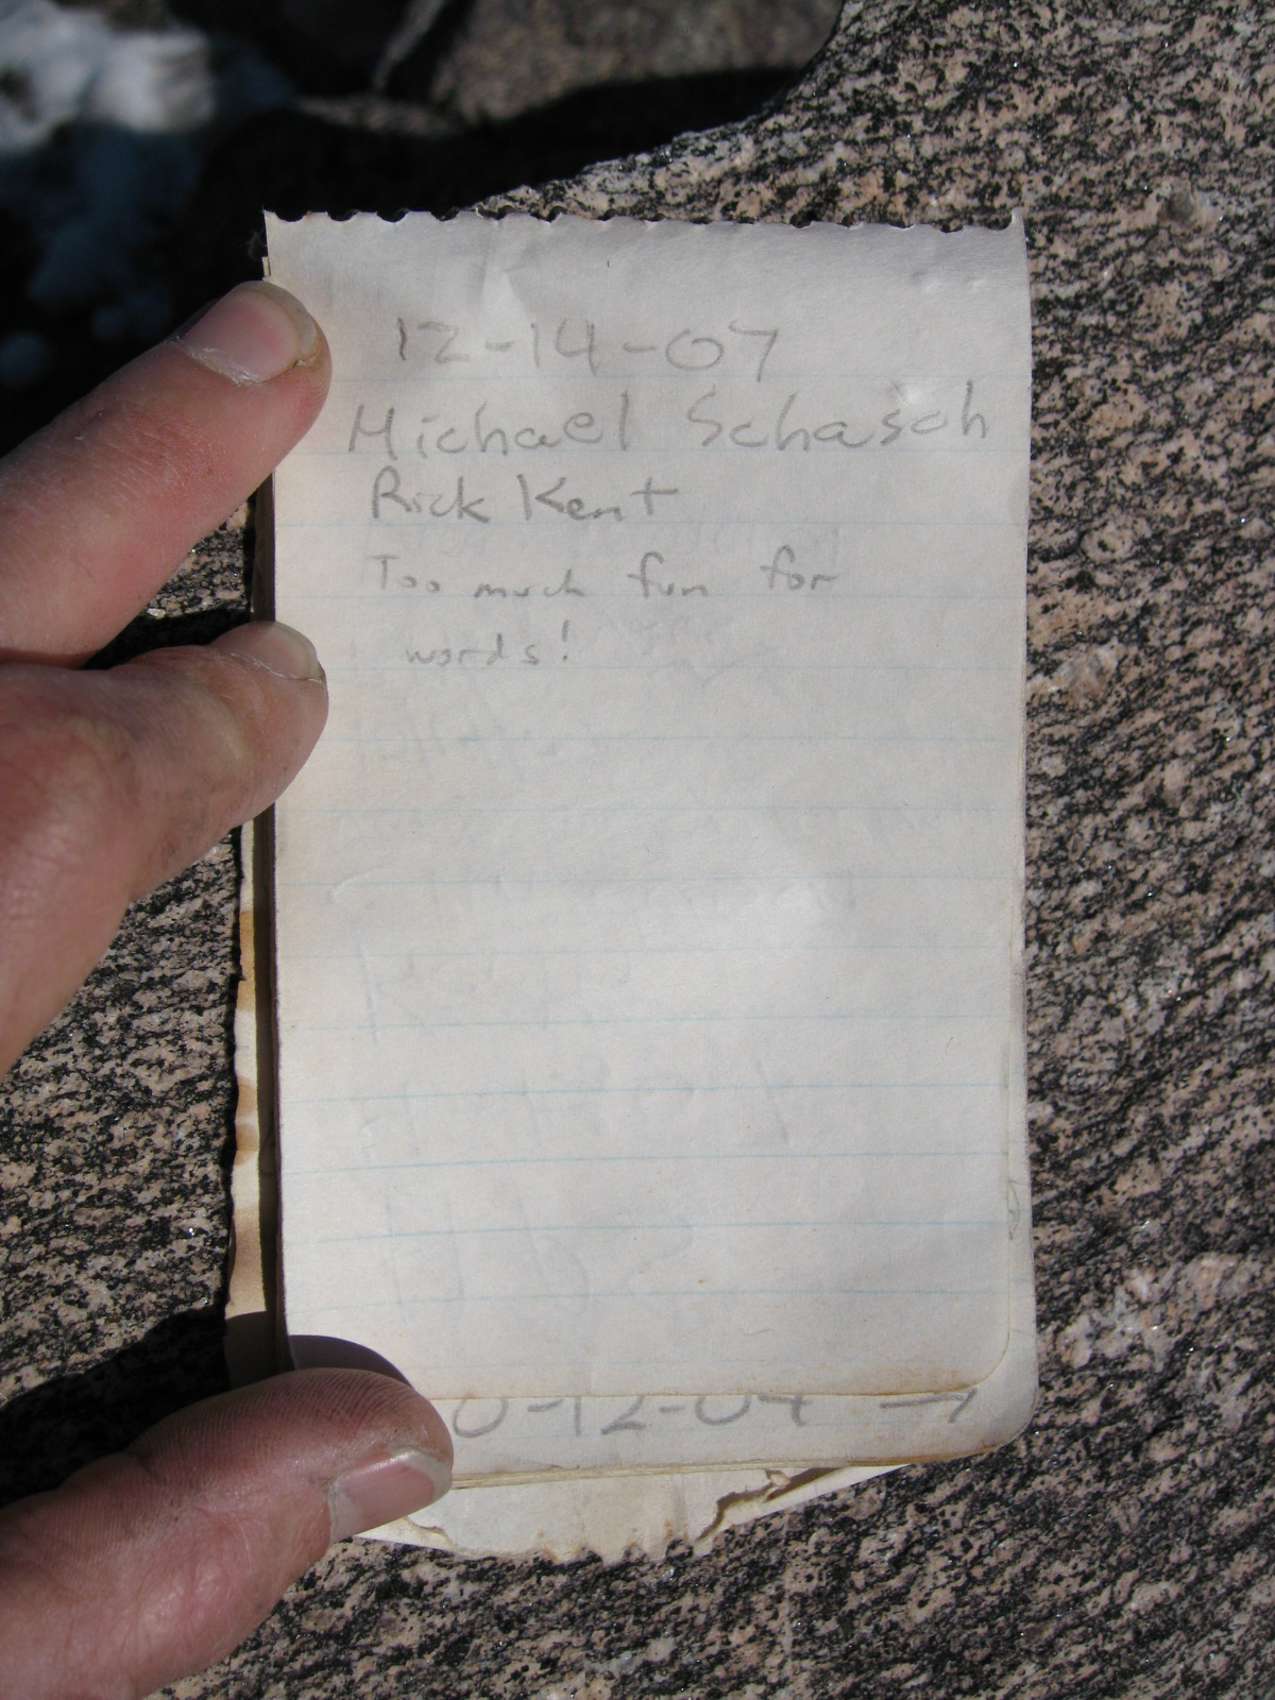 12-14-07
Michael Schasch
Rick Kent
Too much fun for
words!
0-12-04 →